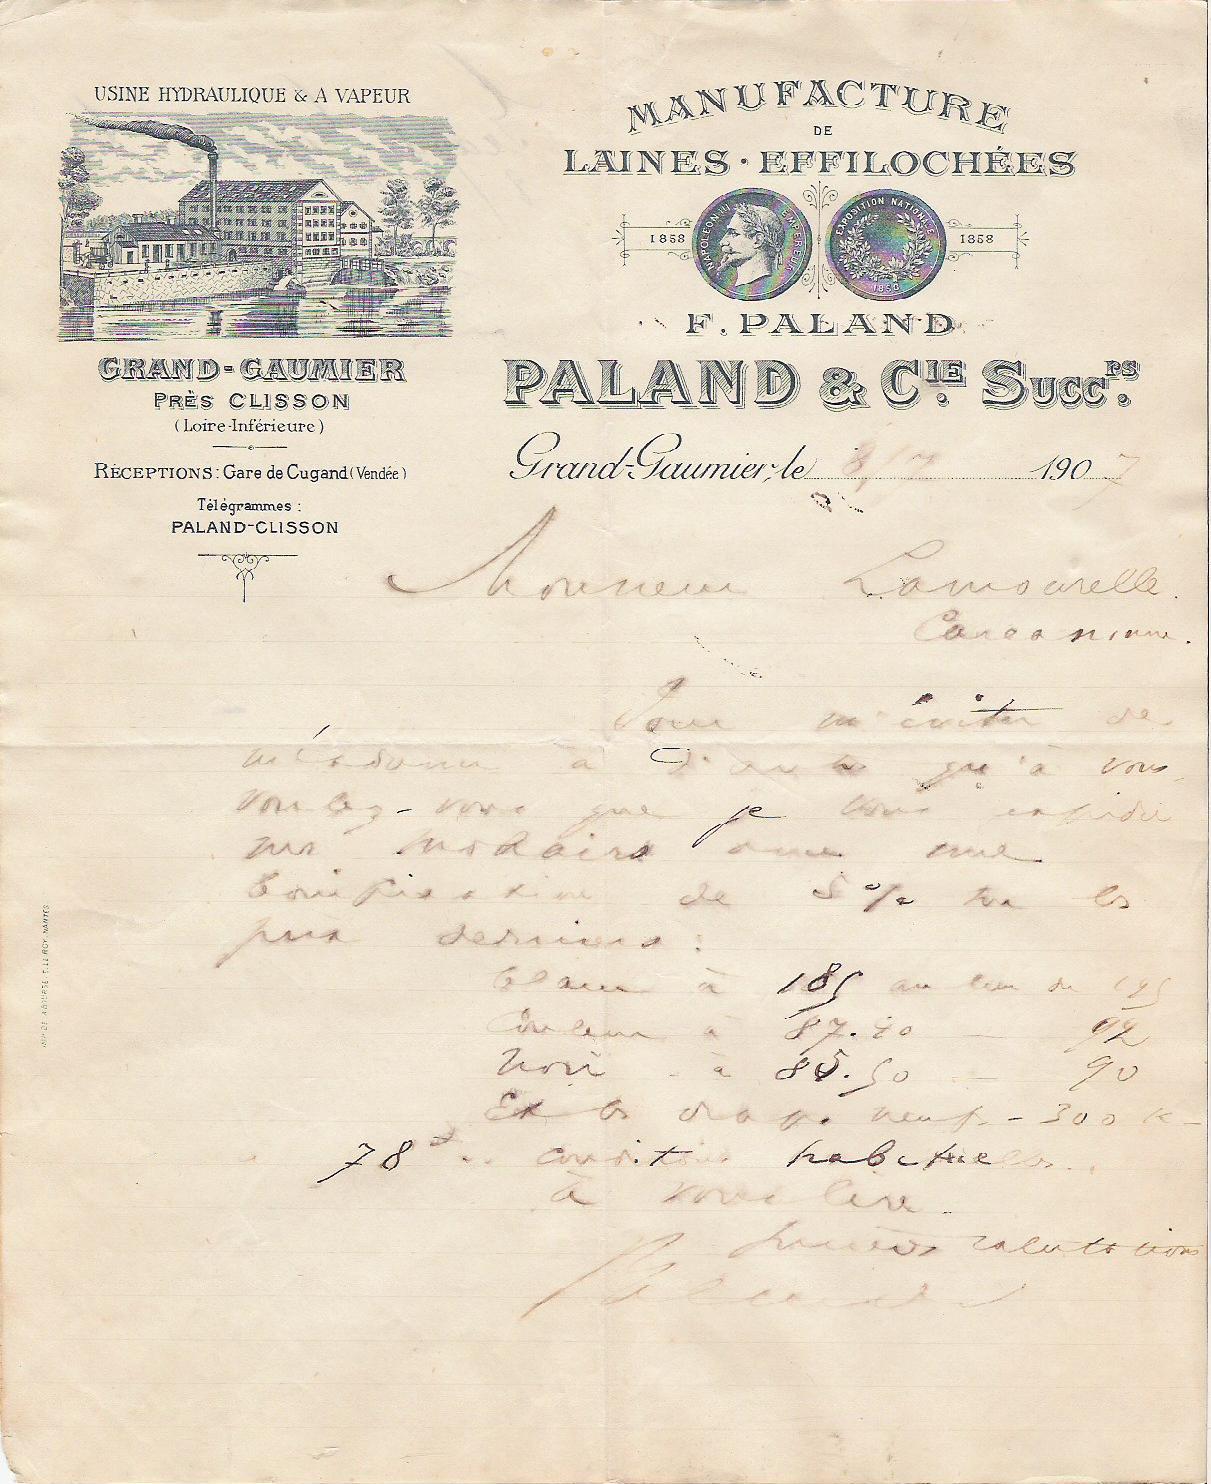 USINE HYDRAULIQUE & A VAPEUR
GRAND-GAUMIER
PRÈS CLISSON
(Loire-Inférieure)
RÉCEPTIONS: Gare de Cugand (Vendée)
Télégrammes:
PALAND-CLISSON
MANUFACTURE
DE
LAINES · EFFILOCHÉES
1858
NAPOLEON III EMPEREUR
EXPOSITION NATIONALE
1858
F. PALAND
PALAND & CIE. SUCCRS.
Grand-Gaumier, le 8/7 1907
Monsieur Lamourelle.
Carcassonne.
Pour m'éviter de
à d'autres qu'à vous,
voulez-vous que je vous expédie
avec une
de 5% sur les
prix derniers:
blanc à 185 au lieu de 195
Couleur à 87.40 — 92
Noir - à 85.50 — 90
Et les drap. neuf - 300 K -
78 .. conditions habituelles..
à vous lire
sincères salutations
Paland